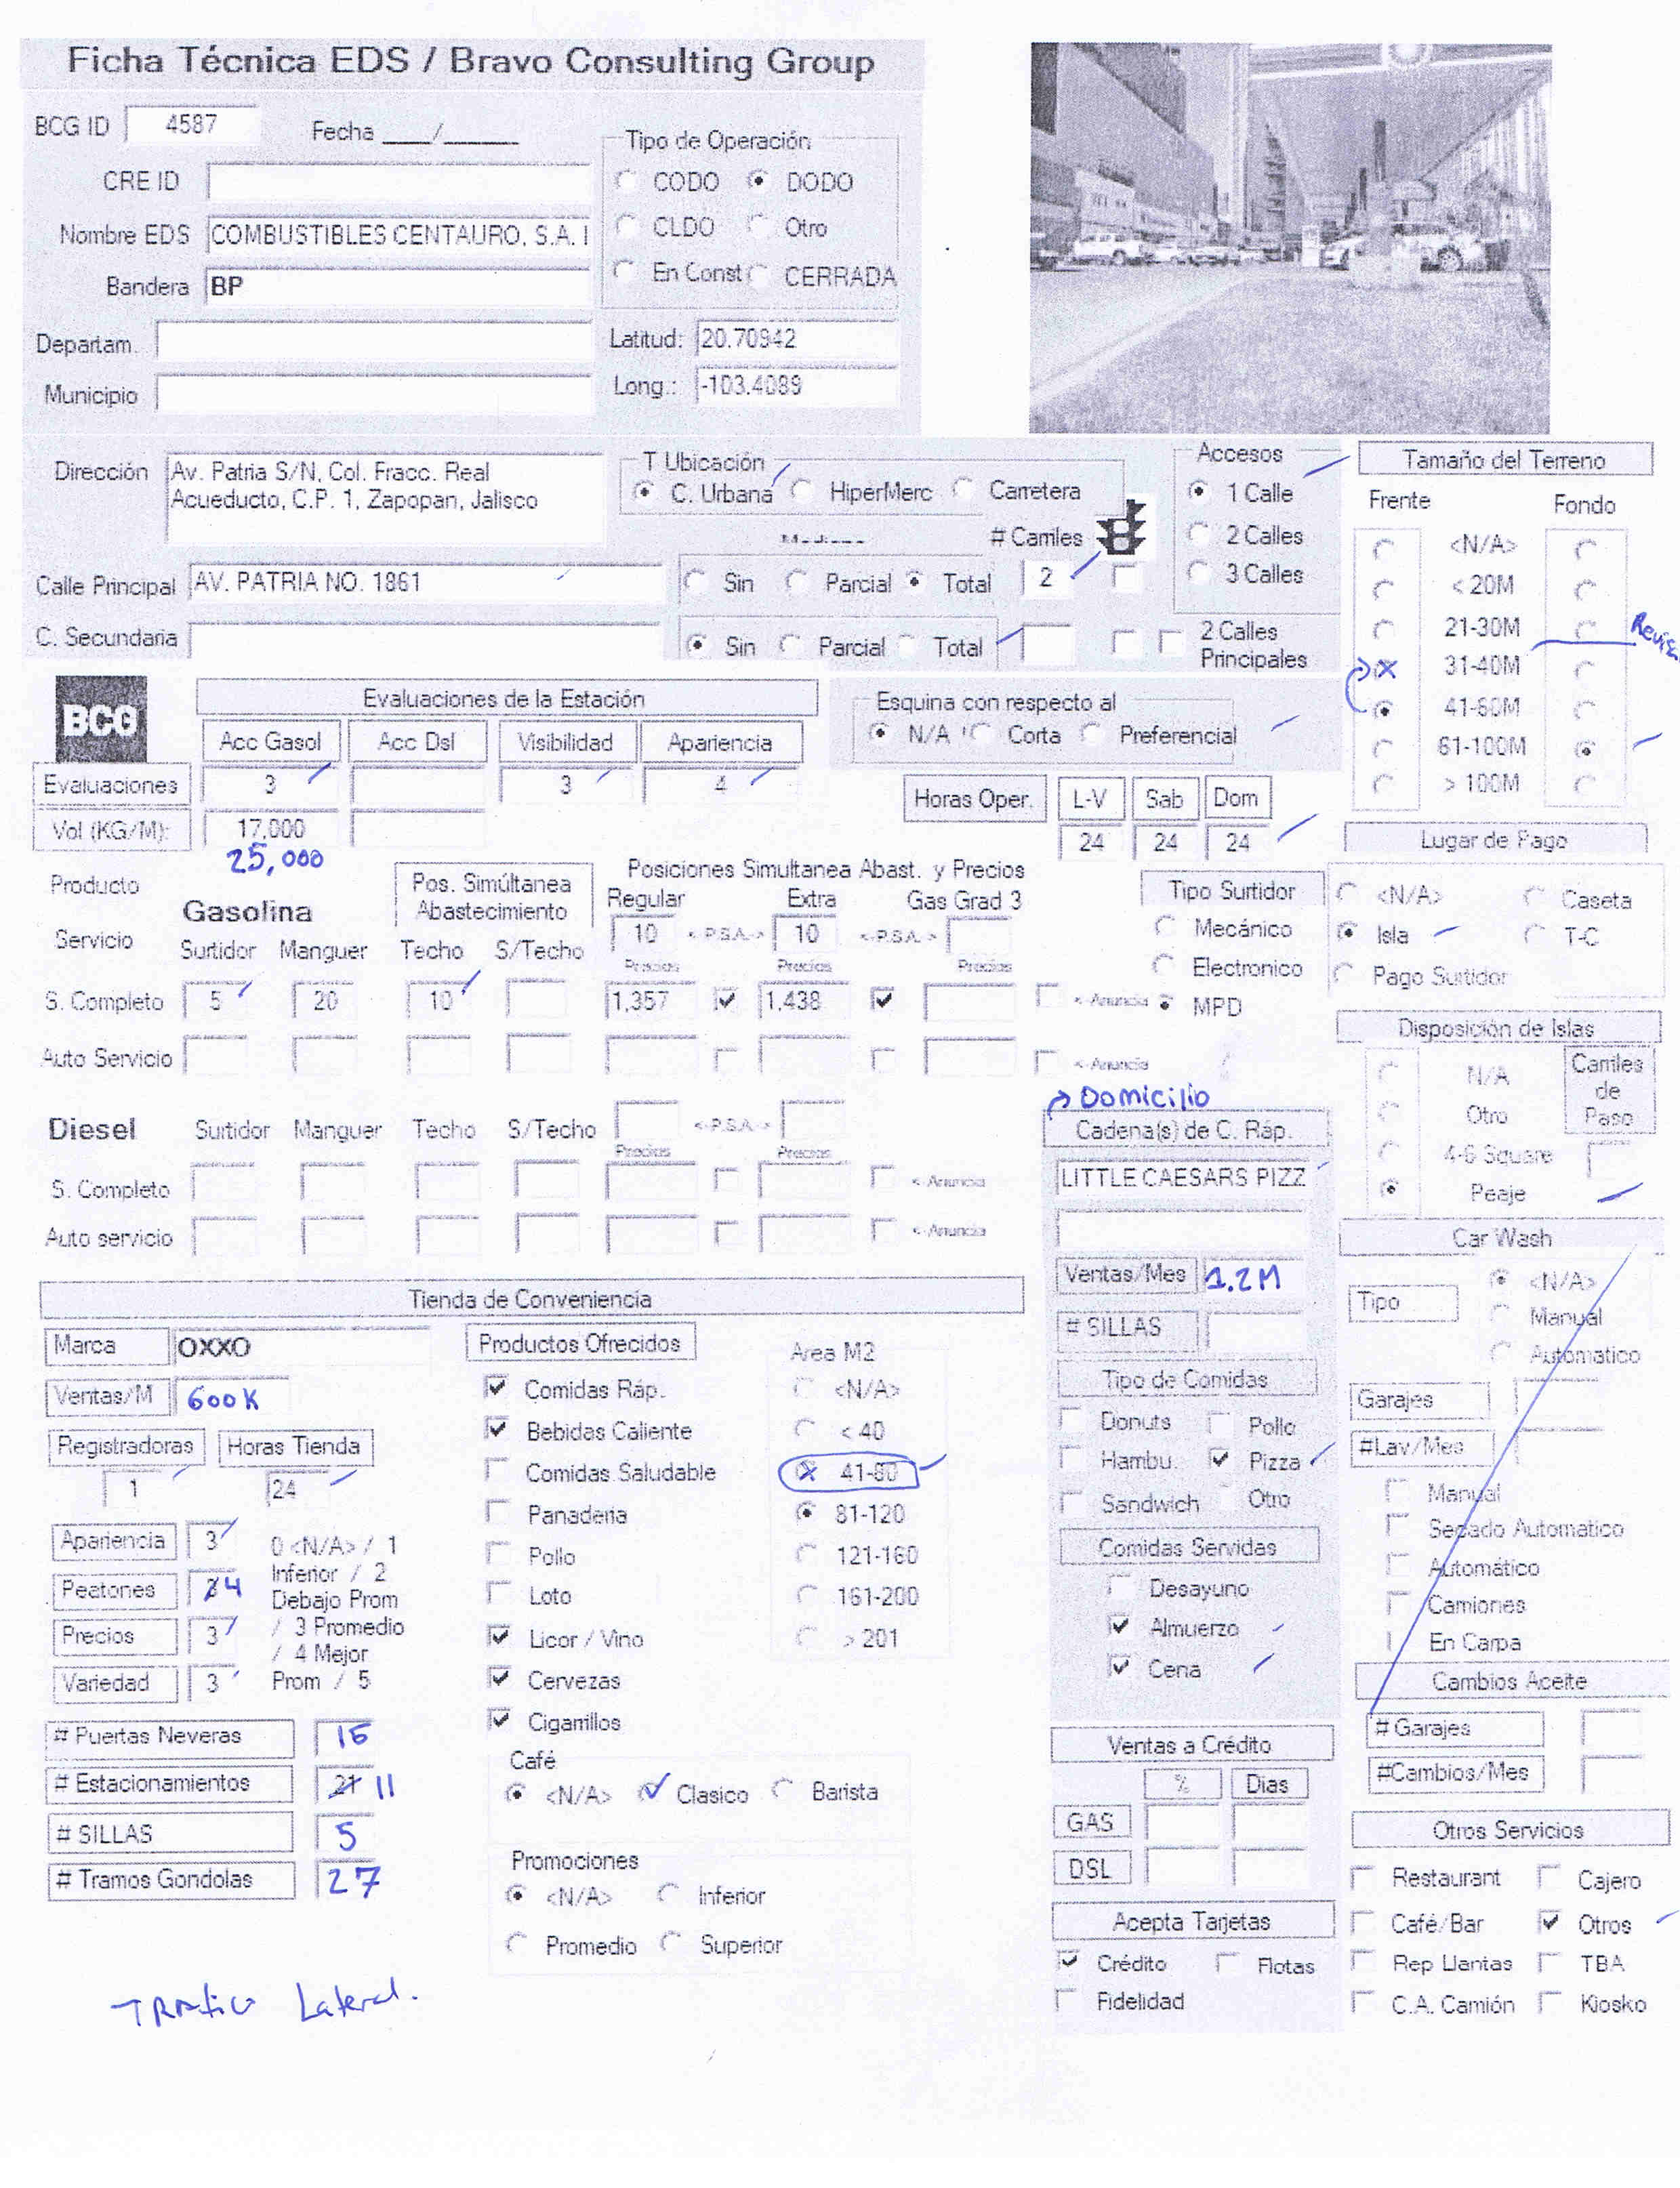 Ficha Técnica EDS / Bravo Consulting Group
BCG ID 4587 Fecha ___/_____
CRE ID
Nombre EDS COMBUSTIBLES CENTAURO, S.A. I
Bandera BP
Departam.
Municipio
Tipo de Operación
CODO DODO
CLDO Otro
En Const CERRADA
Latitud: 20.70942
Long.: -103.4089
Dirección Av. Patria S/N, Col. Fracc. Real
Acueducto, C.P. 1, Zapopan, Jalisco
Calle Principal AV. PATRIA NO. 1861
C. Secundaria
T Ubicación
C. Urbana HiperMerc Carretera
# Carriles
Sin Parcial Total 2
Sin Parcial Total
2 Calles
Principales
Accesos
1 Calle
2 Calles
3 Calles
Tamaño del Terreno
Frente Fondo
<N/A>
< 20M
21-30M
31-40M
41-60M
61-100M
> 100M
BCG
Evaluaciones de la Estación
Acc Gasol Acc Dsl Visibilidad Apariencia
Evaluaciones 3 3 4
Vol (KG/M): 17,000
25,000
Esquina con respecto al
N/A Corta Preferencial
Horas Oper. L-V Sab Dom
24 24 24
Lugar de Pago
<N/A> Caseta
Isla T-C
Pago Surtidor
Producto
Gasolina
Servicio
Pos. Simúltanea
Abastecimiento
Posiciones Simultanea Abast. y Precios
Regular Extra Gas Grad 3
10 <-P.S.A.-> 10 <-P.S.A.->
Surtidor Manguer Techo S/Techo
Precios Precios Precios
S. Completo 5 20 10 1,357 1,438 <-Anuncia
Auto Servicio <-Anuncia
Tipo Surtidor
Mecánico
Electronico
MPD
Disposición de Islas
N/A
Otro
4-6 Square
Peaje
Carriles
de
Paso
Diesel Surtidor Manguer Techo S/Techo <-P.S.A.->
Precios Precios
S. Completo <-Anuncia
Auto servicio <-Anuncia
Domicilio
Cadena(s) de C. Ráp.
LITTLE CAESARS PIZZ
Ventas/Mes 1.2M
# SILLAS
Tipo de Comidas
Donuts Pollo
Hambu. Pizza
Sandwich Otro
Comidas Servidas
Desayuno
Almuerzo
Cena
Car Wash
Tipo
<N/A>
Manual
Automatico
Garajes
#Lav/Mes
Manual
Secado Automatico
Automático
Camiones
En Carpa
Cambios Aceite
# Garajes
#Cambios/Mes
Tienda de Conveniencia
Marca OXXO
Ventas/M 600K
Registradoras Horas Tienda
1 24
Apariencia 3
Peatones 4
Precios 3
Variedad 3
0 <N/A> / 1
Inferior / 2
Debajo Prom
/ 3 Promedio
/ 4 Mejor
Prom / 5
# Puertas Neveras 15
# Estacionamientos 21 11
# SILLAS 5
# Tramos Gondolas 27
Productos Ofrecidos
Comidas Ráp.
Bebidas Caliente
Comidas Saludable
Panaderia
Pollo
Loto
Licor / Vino
Cervezas
Cigarrillos
Area M2
<N/A>
< 40
41-80
81-120
121-160
161-200
> 201
Café
<N/A> Clasico Barista
Promociones
<N/A> Inferior
Promedio Superior
Ventas a Crédito
% Dias
GAS
DSL
Acepta Tarjetas
Crédito Flotas
Fidelidad
Otros Servicios
Restaurant Cajero
Café/Bar Otros
Rep Llantas TBA
C.A. Camión Kiosko
Trafico Lateral.